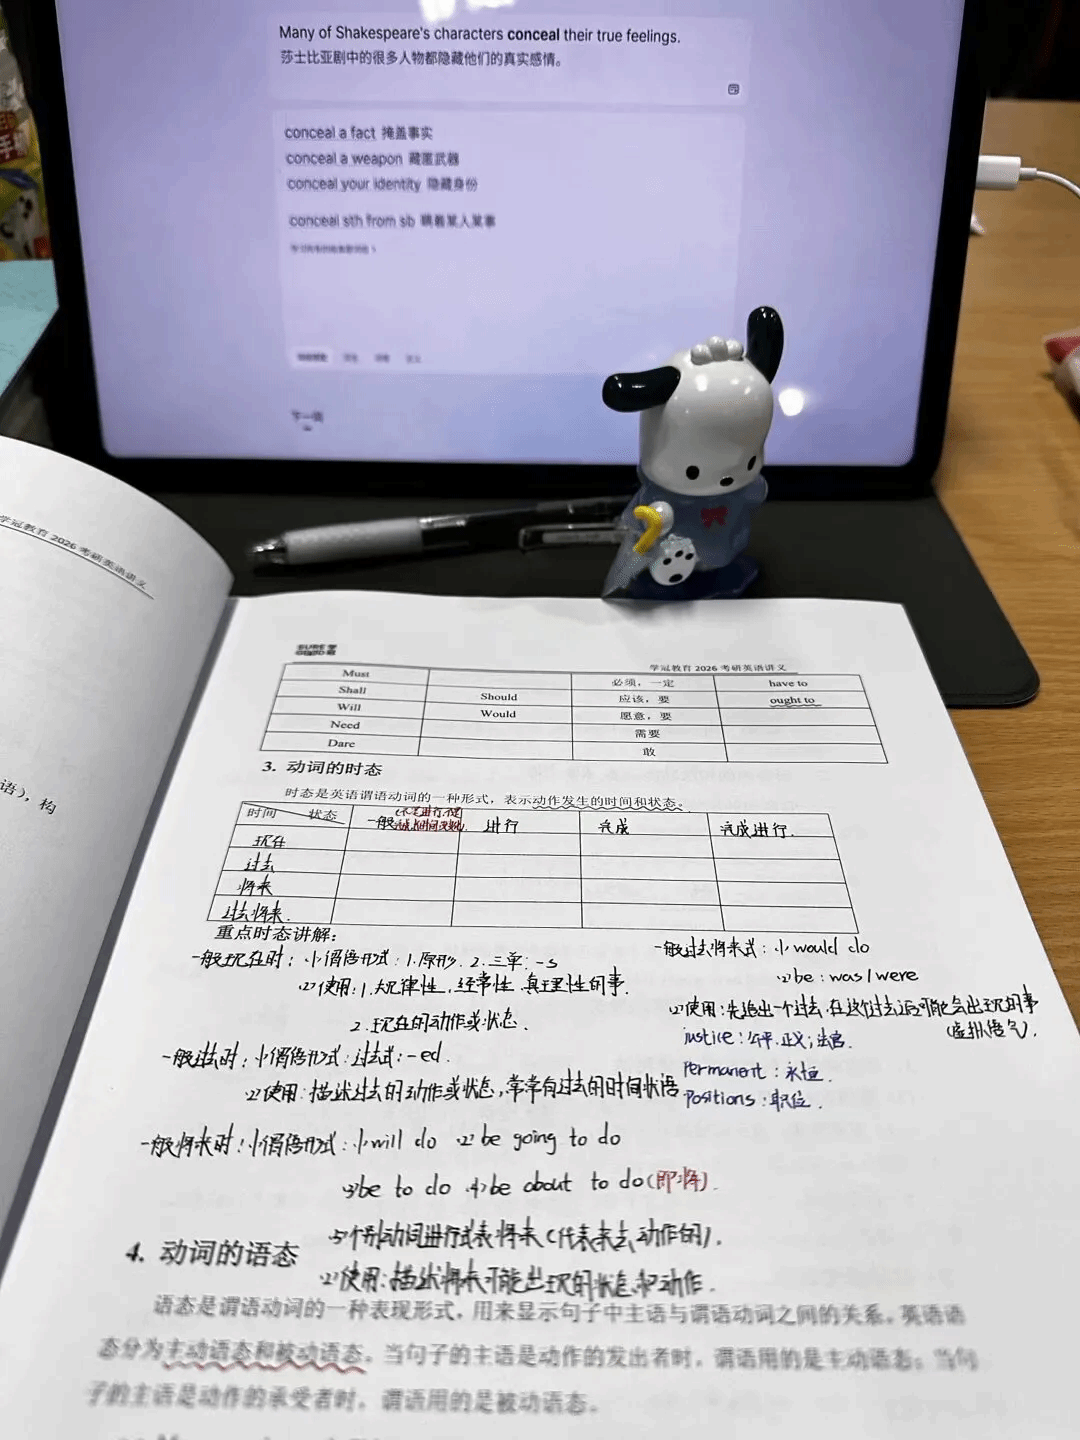 Many of Shakespeare's characters conceal their true feelings.
莎士比亚剧中的很多人物都隐藏他们的真实感情。
conceal a fact 掩盖事实
conceal a weapon 藏匿武器
conceal your identity 隐藏身份
conceal sth from sb 瞒着某人某事
下一词
学冠教育 2026 考研英语讲义
语），构
学冠教育 2026 考研英语讲义
Must 必须，一定 have to
Shall Should 应该，要 ought to
Will Would 愿意，要
Need 需要
Dare 敢
3. 动词的时态
时态是英语谓语动词的一种形式，表示动作发生的时间和状态。
时间 状态 一般 进行 完成 完成进行.
现在
过去
将来
过去将来.
重点时态讲解：
一般现在时：(1)谓语形式：1.原形. 2.三单：-s
(2)使用：1.规律性，经常性，真理性的事.
2.现在的动作或状态.
一般过去时：(1)谓语形式：过去式：-ed.
(2)使用：描述过去的动作或状态，常常有过去的时间状语.
一般将来时：(1)谓语形式：(1)will do (2)be going to do
(3)be to do (4)be about to do(即将).
(5)个别动词进行式表将来(代表来去动作的).
(2)使用：描述将来可能出现的状态和动作.
一般过去将来式：(1)would do
(2)be：was/were
(2)使用：先追出一个过去，在这个过去后可能会出现的事
(虚拟语气).
justice：公平.正义；法官.
Permanent：永恒.
Positions：职位.
4. 动词的语态
语态是谓语动词的一种表现形式，用来显示句子中主语与谓语动词之间的关系。英语语
态分为主动语态和被动语态。当句子的主语是动作的发出者时，谓语用的是主动语态；当句
子的主语是动作的承受者时，谓语用的是被动语态。